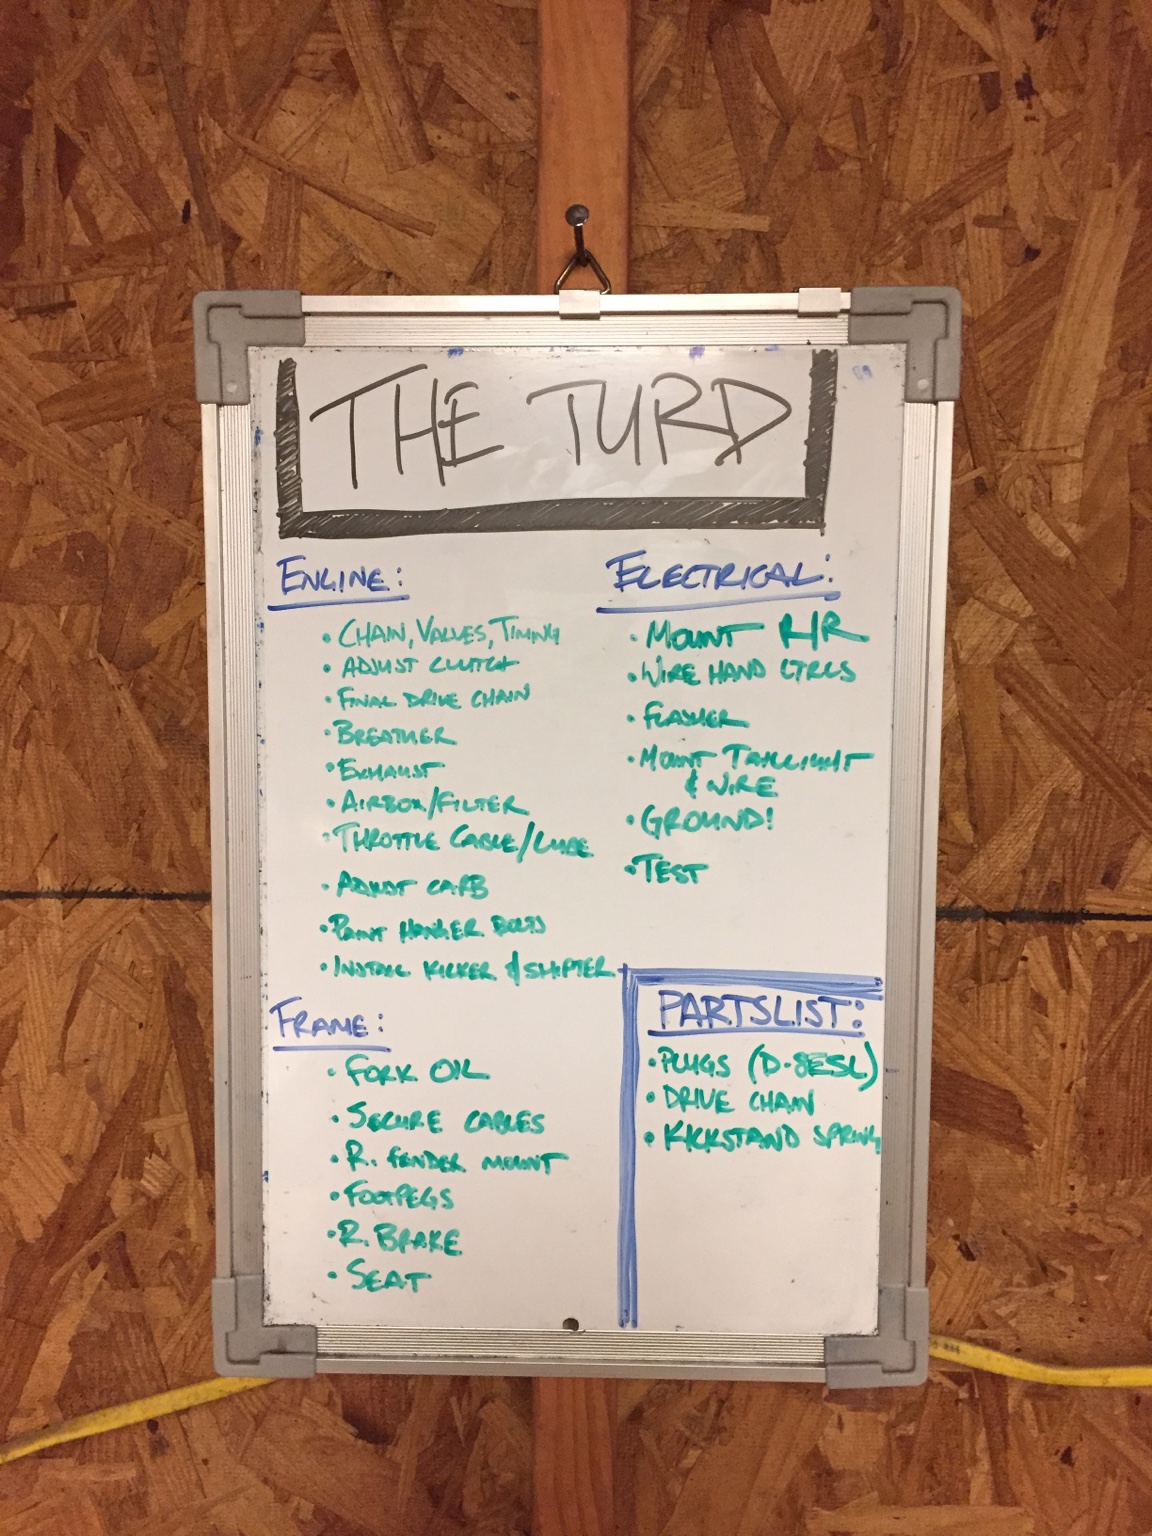 THE TURD
ENGINE:
• CHAIN, VALVES, TIMING
• ADJUST CLUTCH
• FINAL DRIVE CHAIN
• BREATHER
• EXHAUST
• AIRBOX/FILTER
• THROTTLE CABLE/LUBE
• ADJUST CARB
• PAINT HANGER BOLTS
• INSTALL KICKER & SHIFTER
FRAME:
• FORK OIL
• SECURE CABLES
• R. FENDER MOUNT
• FOOTPEGS
• R. BRAKE
• SEAT
ELECTRICAL:
• MOUNT R/R
• WIRE HAND CTRLS
• FLASHER
• MOUNT TAILLIGHT
& WIRE
• GROUND!
• TEST
PARTSLIST:
• PLUGS (D-8ESL)
• DRIVE CHAIN
• KICKSTAND SPRING